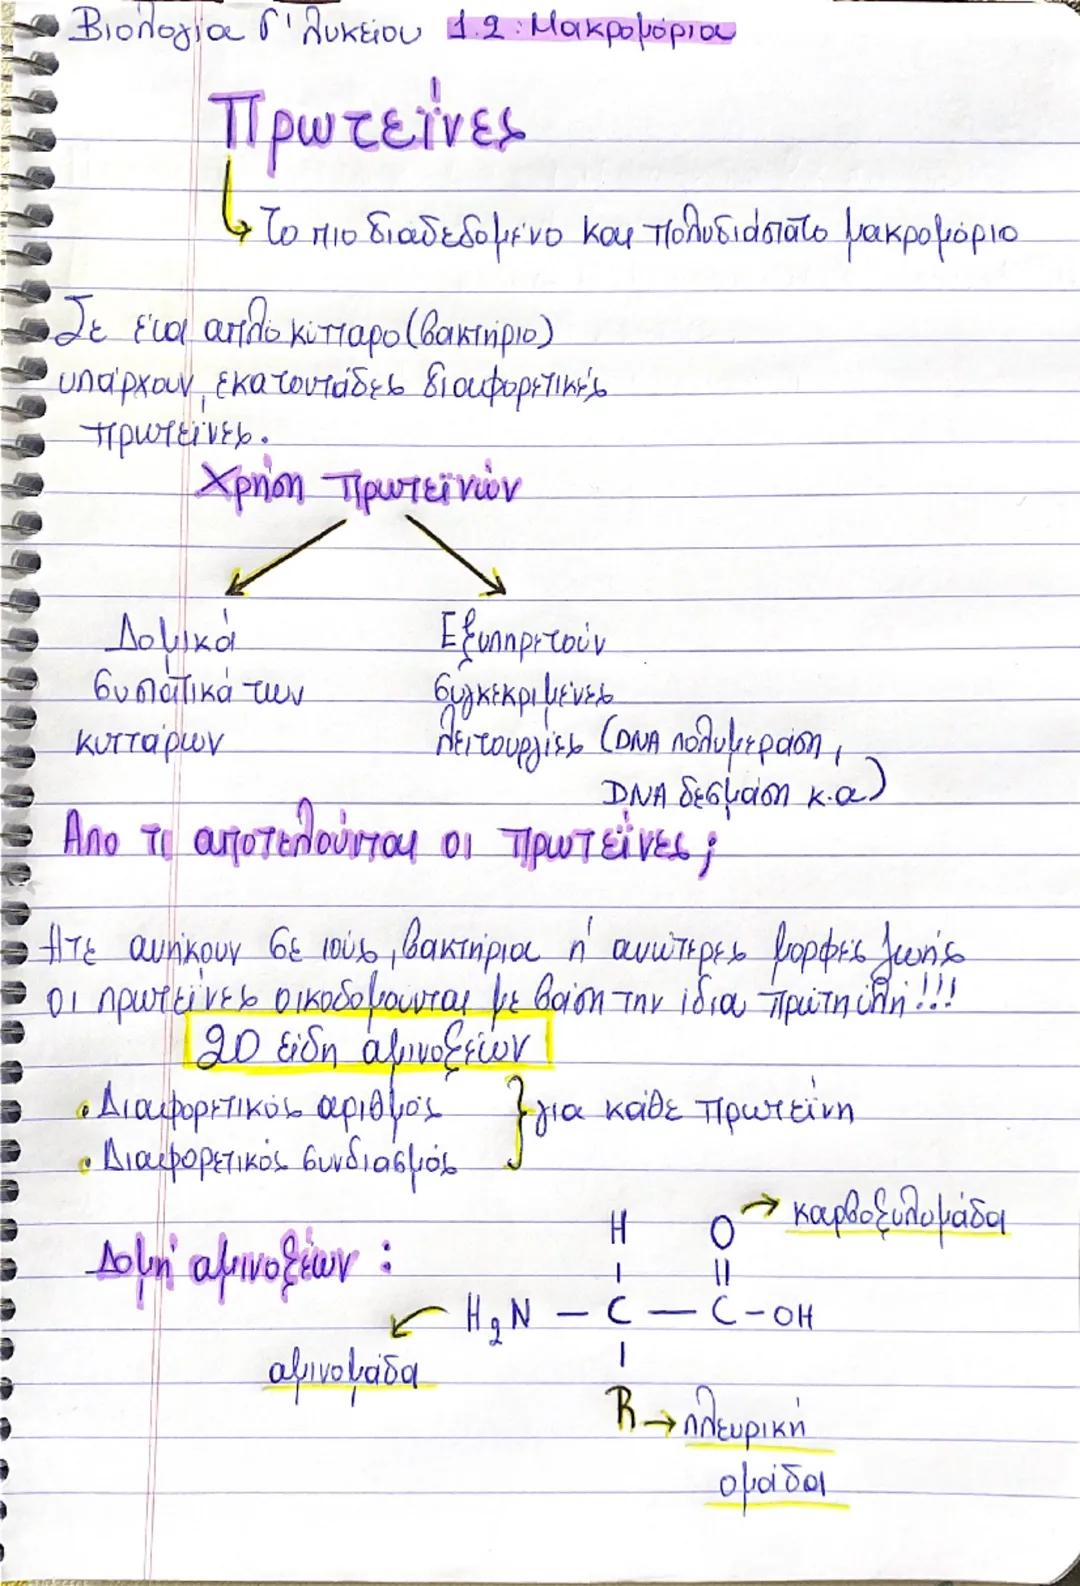 Βιολογία Γ' Λυκείου 1.2: Μακρομόρια
Πρωτεΐνες
Το πιο διαδεδομένο και πολυδιάστατο μακρομόριο
Σε ένα απλό κύτταρο (βακτήριο)
υπάρχουν εκατοντάδες διαφορετικές
πρωτεΐνες.
Χρήση Πρωτεϊνών
Δομικά
συστατικά των
κυττάρων
Εξυπηρετούν
συγκεκριμένες
λειτουργίες (DNA πολυμεράση,
DNA δεσμάση κ.α)
Απο τι αποτελούνται οι Πρωτεΐνες;
Ατε ανήκουν σε ιούς, βακτήρια ή ανώτερες μορφές ζωής
οι πρωτεΐνες οικοδομούνται με βάση την ίδια πρώτη ύλη!!!
20 είδη αμινοξέων
• Διαφορετικός αριθμός } για κάθε πρωτεΐνη
• Διαφορετικός συνδιασμός
Δομή αμινοξέων:
H O → καρβοξυλομάδα
| ||
H₂N – C – C – OH
αμινομάδα |
R → πλευρική
ομάδα